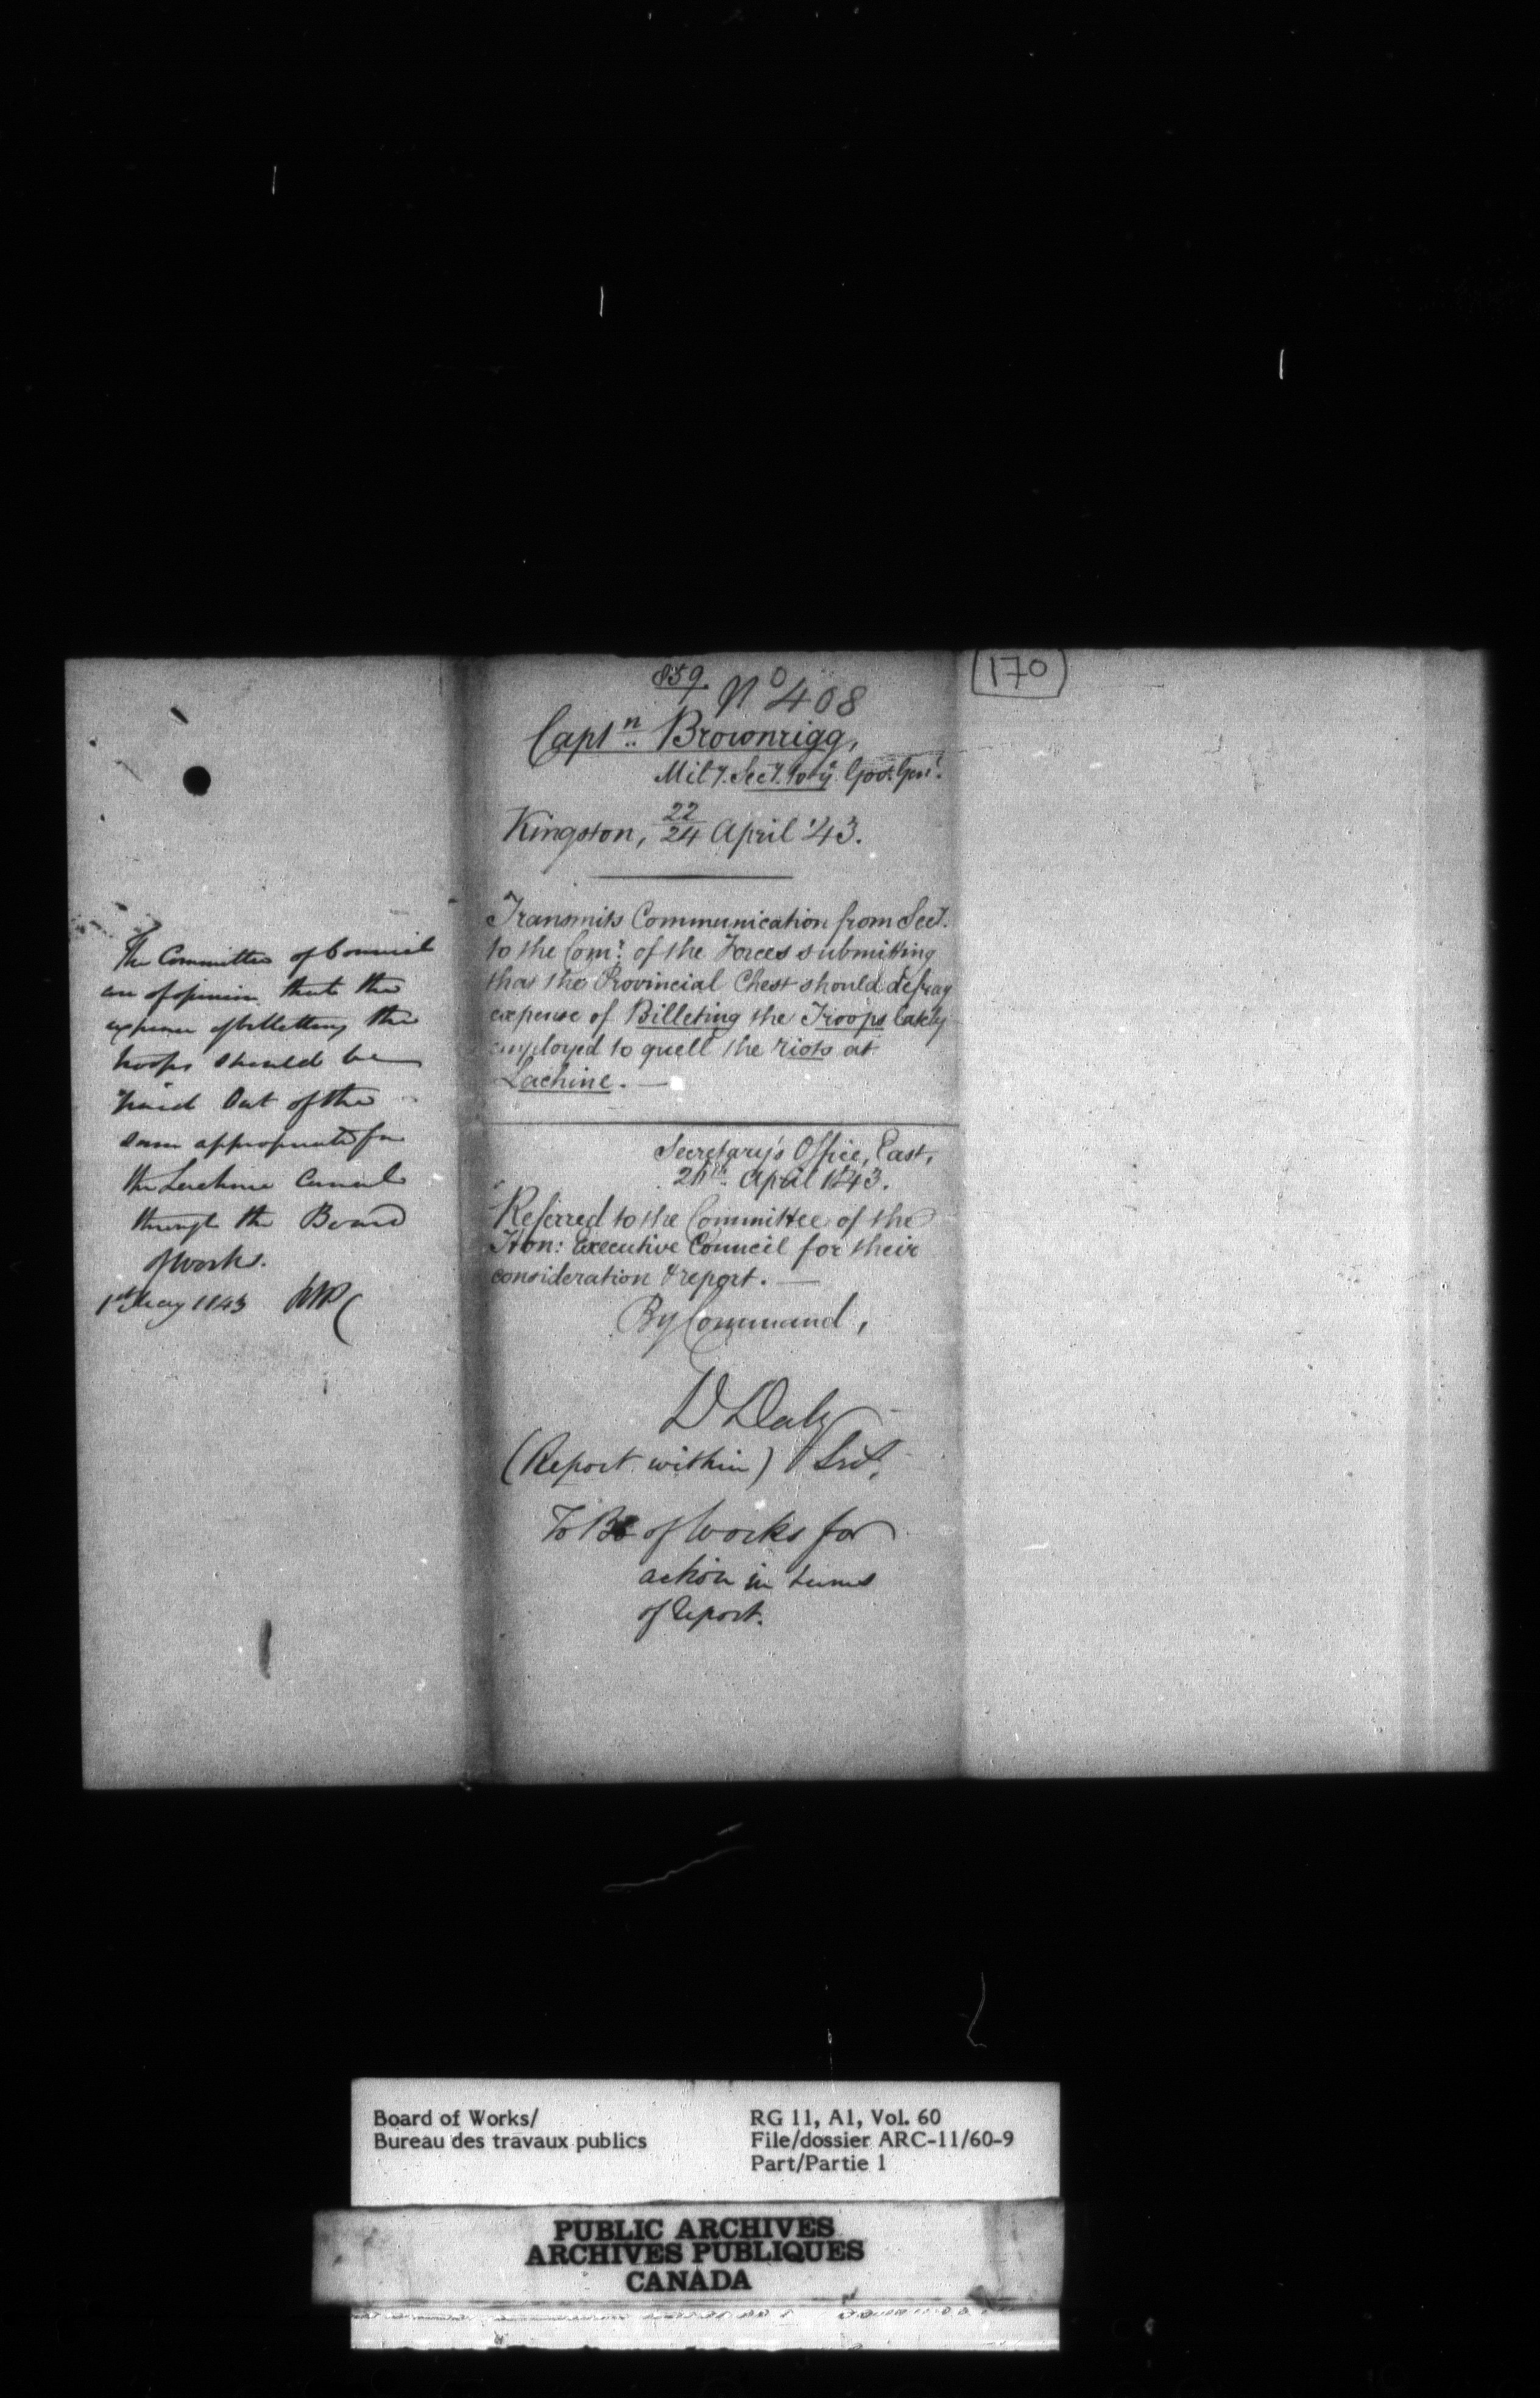 The Committee of Council
are of opinion that the
expense of billetting the
troops should be
paid Out of the
sum appropriated for
the Lachine Canal
through the Board
of Works.
1st May 1843
859
No 408
Captn. Brownrigg,
Mily. Secy. to ye. Gov. Genl.
Kingston, 22/24 April '43.
Transmits Communication from Secy.
to the Comr. of the Forces submitting
that the Provincial Chest should defray
expense of Billeting the Troops lately
employed to quell the riots at
Lachine. —
Secretary's Office, East,
April 1843.
Referred to the Committee of the
Hon: Executive Council for their
consideration & report. —
By Command,
D Daly
(Report within) Secy.
To Bd of Works for
action in terms
of report.
170
Board of Works/
Bureau des travaux publics
RG 11, A1, Vol. 60
File/dossier ARC-11/60-9
Part/Partie 1
PUBLIC ARCHIVES
ARCHIVES PUBLIQUES
CANADA